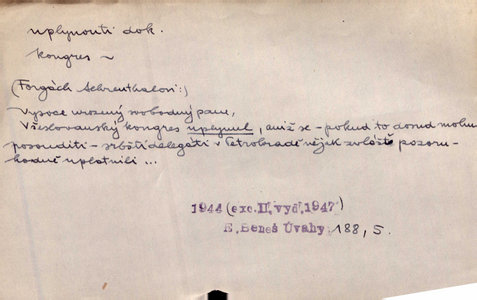 uplynouti dok.
kongres ~
(Forgách Aehrenthalovi:)
Vysoce urozený svobodný pane,
Všeslovanský kongres uplynul, aniž se - pokud to dosud mohu
posouditi - srbští delegáti v Petrohradě nějak zvláště pozoru-
hodně uplatnili ...
1944 (exc. II. vyd. 1947)
E. Beneš Úvahy, 188, 5.